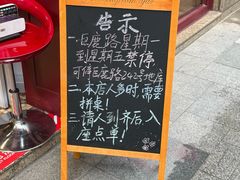 告示
一.白鹿路星期一
到星期五禁停
可停白鹿路242号地库
二.本店人多时,需要
拼桌!
三.请人到齐后入
座点单!